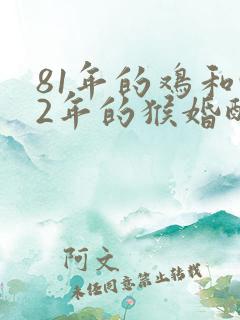 81年的鸡和
2年的猴婚
阿文
未经同意禁止转载